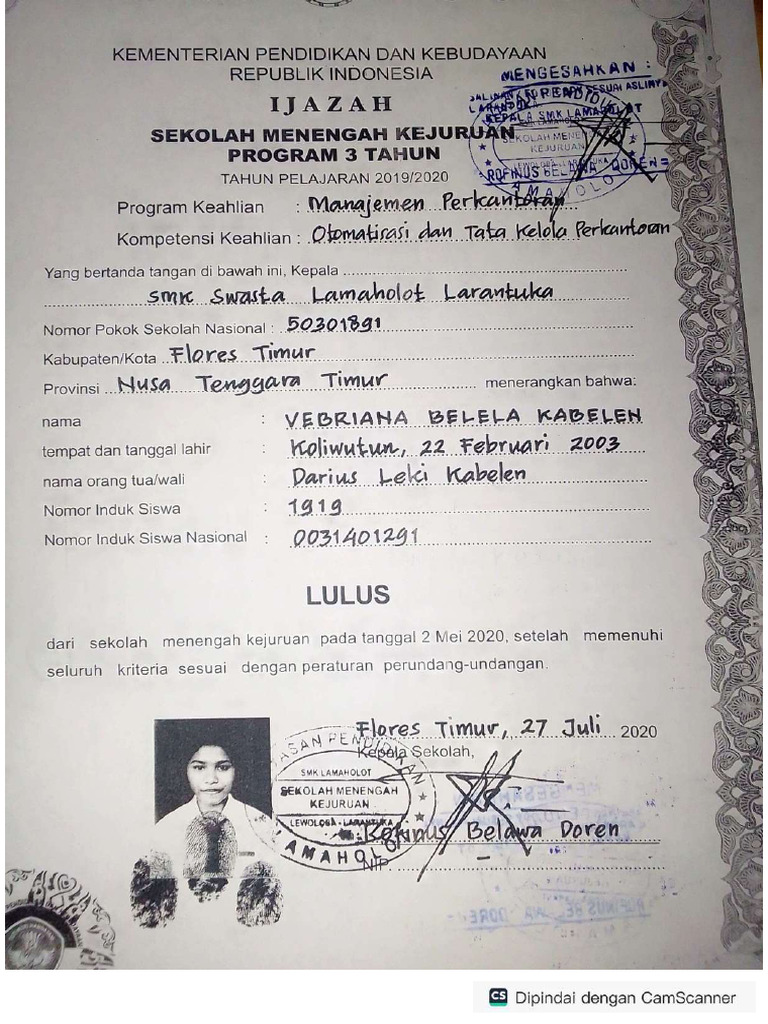 KEMENTERIAN PENDIDIKAN DAN KEBUDAYAAN
REPUBLIK INDONESIA
IJAZAH
SEKOLAH MENENGAH KEJURUAN
PROGRAM 3 TAHUN
TAHUN PELAJARAN 2019/2020
MENGESAHKAN :
SESUAI ASLINYA
LARANTUKA
KEPALA SMK LAMAHOLOT
SEKOLAH MENE
KEJURUAN
LEWOLOBA - LARANTUKA
ROFINUS BELAWA DOREN
LAMAHOLO
Program Keahlian : Manajemen Perkantoran
Kompetensi Keahlian : Otomatisasi dan Tata Kelola Perkantoran
Yang bertanda tangan di bawah ini, Kepala
SMK Swasta Lamaholot Larantuka
Nomor Pokok Sekolah Nasional : 50301891
Kabupaten/Kota Flores Timur
Provinsi Nusa Tenggara Timur menerangkan bahwa:
nama : VEBRIANA BELELA KABELEN
tempat dan tanggal lahir : Koliwutun, 22 Februari 2003
nama orang tua/wali : Darius Leki Kabelen
Nomor Induk Siswa : 1919
Nomor Induk Siswa Nasional : 0031401291
LULUS
dari sekolah menengah kejuruan pada tanggal 2 Mei 2020, setelah memenuhi
seluruh kriteria sesuai dengan peraturan perundang-undangan.
Flores Timur, 27 Juli 2020
Kepala Sekolah,
YASAN PENDIDIKAN
SMK LAMAHOLOT
SEKOLAH MENENGAH
KEJURUAN
LEWOLOBA - LARANTUKA
LAMAHOLOT
Rofinus Belawa Doren
NIP -
CS Dipindai dengan CamScanner